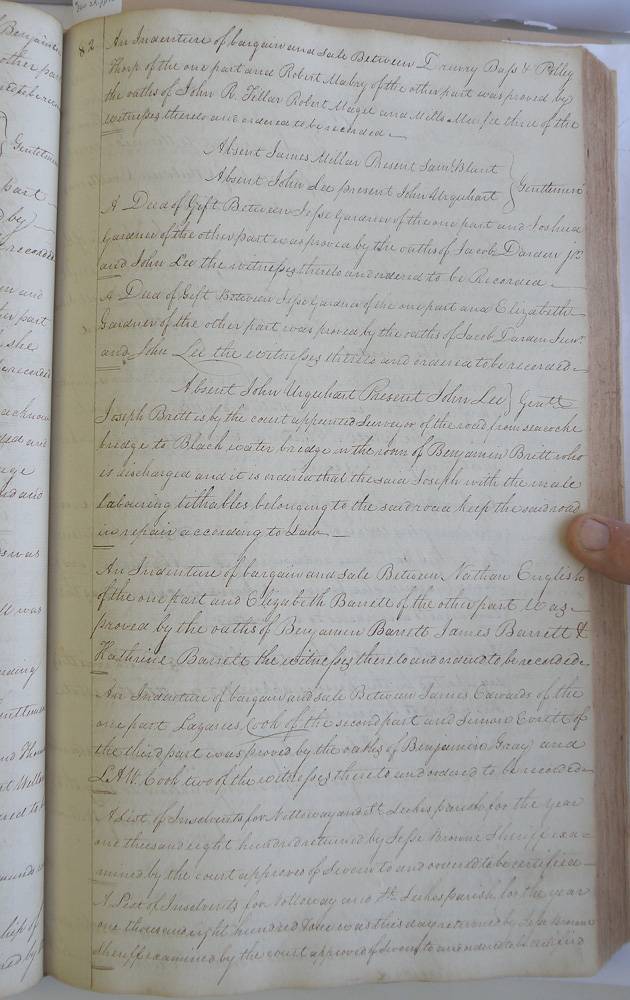 82
An Indenture of bargain and sale Between Drewry Bass & Polley
Thorp of the one part and Robert Mabry of the other part was proved by
the oaths of John R. Fillar Robert Magel and Mills Murfee three of the
witnesses thereto and ordered to be recorded
Absent James Millar Present Saml Blunt
Absent John Lee present John Urquhart } Gentlemen
A Deed of Gift Between Jesse Gardner of the one part and Joshua
Gardner of the other part was proved by the oaths of Jacob Darden jr
and John Lee the witnesses thereto and ordered to be Recorded
A Deed of Gift Between Jesse Gardner of the one part and Elizabeth
Gardner of the other part was proved by the oaths of Jacob Darden Junr
and John Lee the witnesses thereto and ordered to be recorded
Absent John Urquhart Present John Lee } Gentl
Joseph Britt is by the court appointed Surveyor of the road from seacocke
bridge to Black water bridge in the room of Benjamin Britt who
is discharged and it is ordered that the said Joseph with the male
Labouring tithables belonging to the said road keep the said road
in repair according to Law
An Indenture of bargain and sale Between Nathan English
of the one part and Elizabeth Barrett of the other part was
proved by the oaths of Benjamin Barrett James Barrett &
Kathrine Barrett the witnesses thereto and ordered to be recorded
An Indenture of bargain and sale Between James Edwards of the
one part Lazarus Cook of the second part and Simon Everett of
the third part was proved by the oaths of Benjamin Gray and
L. A. W. Cook two of the witnesses thereto and ordered to be recorded
A List of Insolvents for Nottoway and St Lukes parish for the year
one thousand eight hundred returned by Jesse Browne Sheriff exa
mined by the court approved of Sworn to and ordered to be certified
A List of Insolvents for Nottoway and St Lukes parish for the year
one thousand eight hundred & one was this day returned by Jesse Browne
Sheriff examined by the court approved of sworn to and ordered to be certified